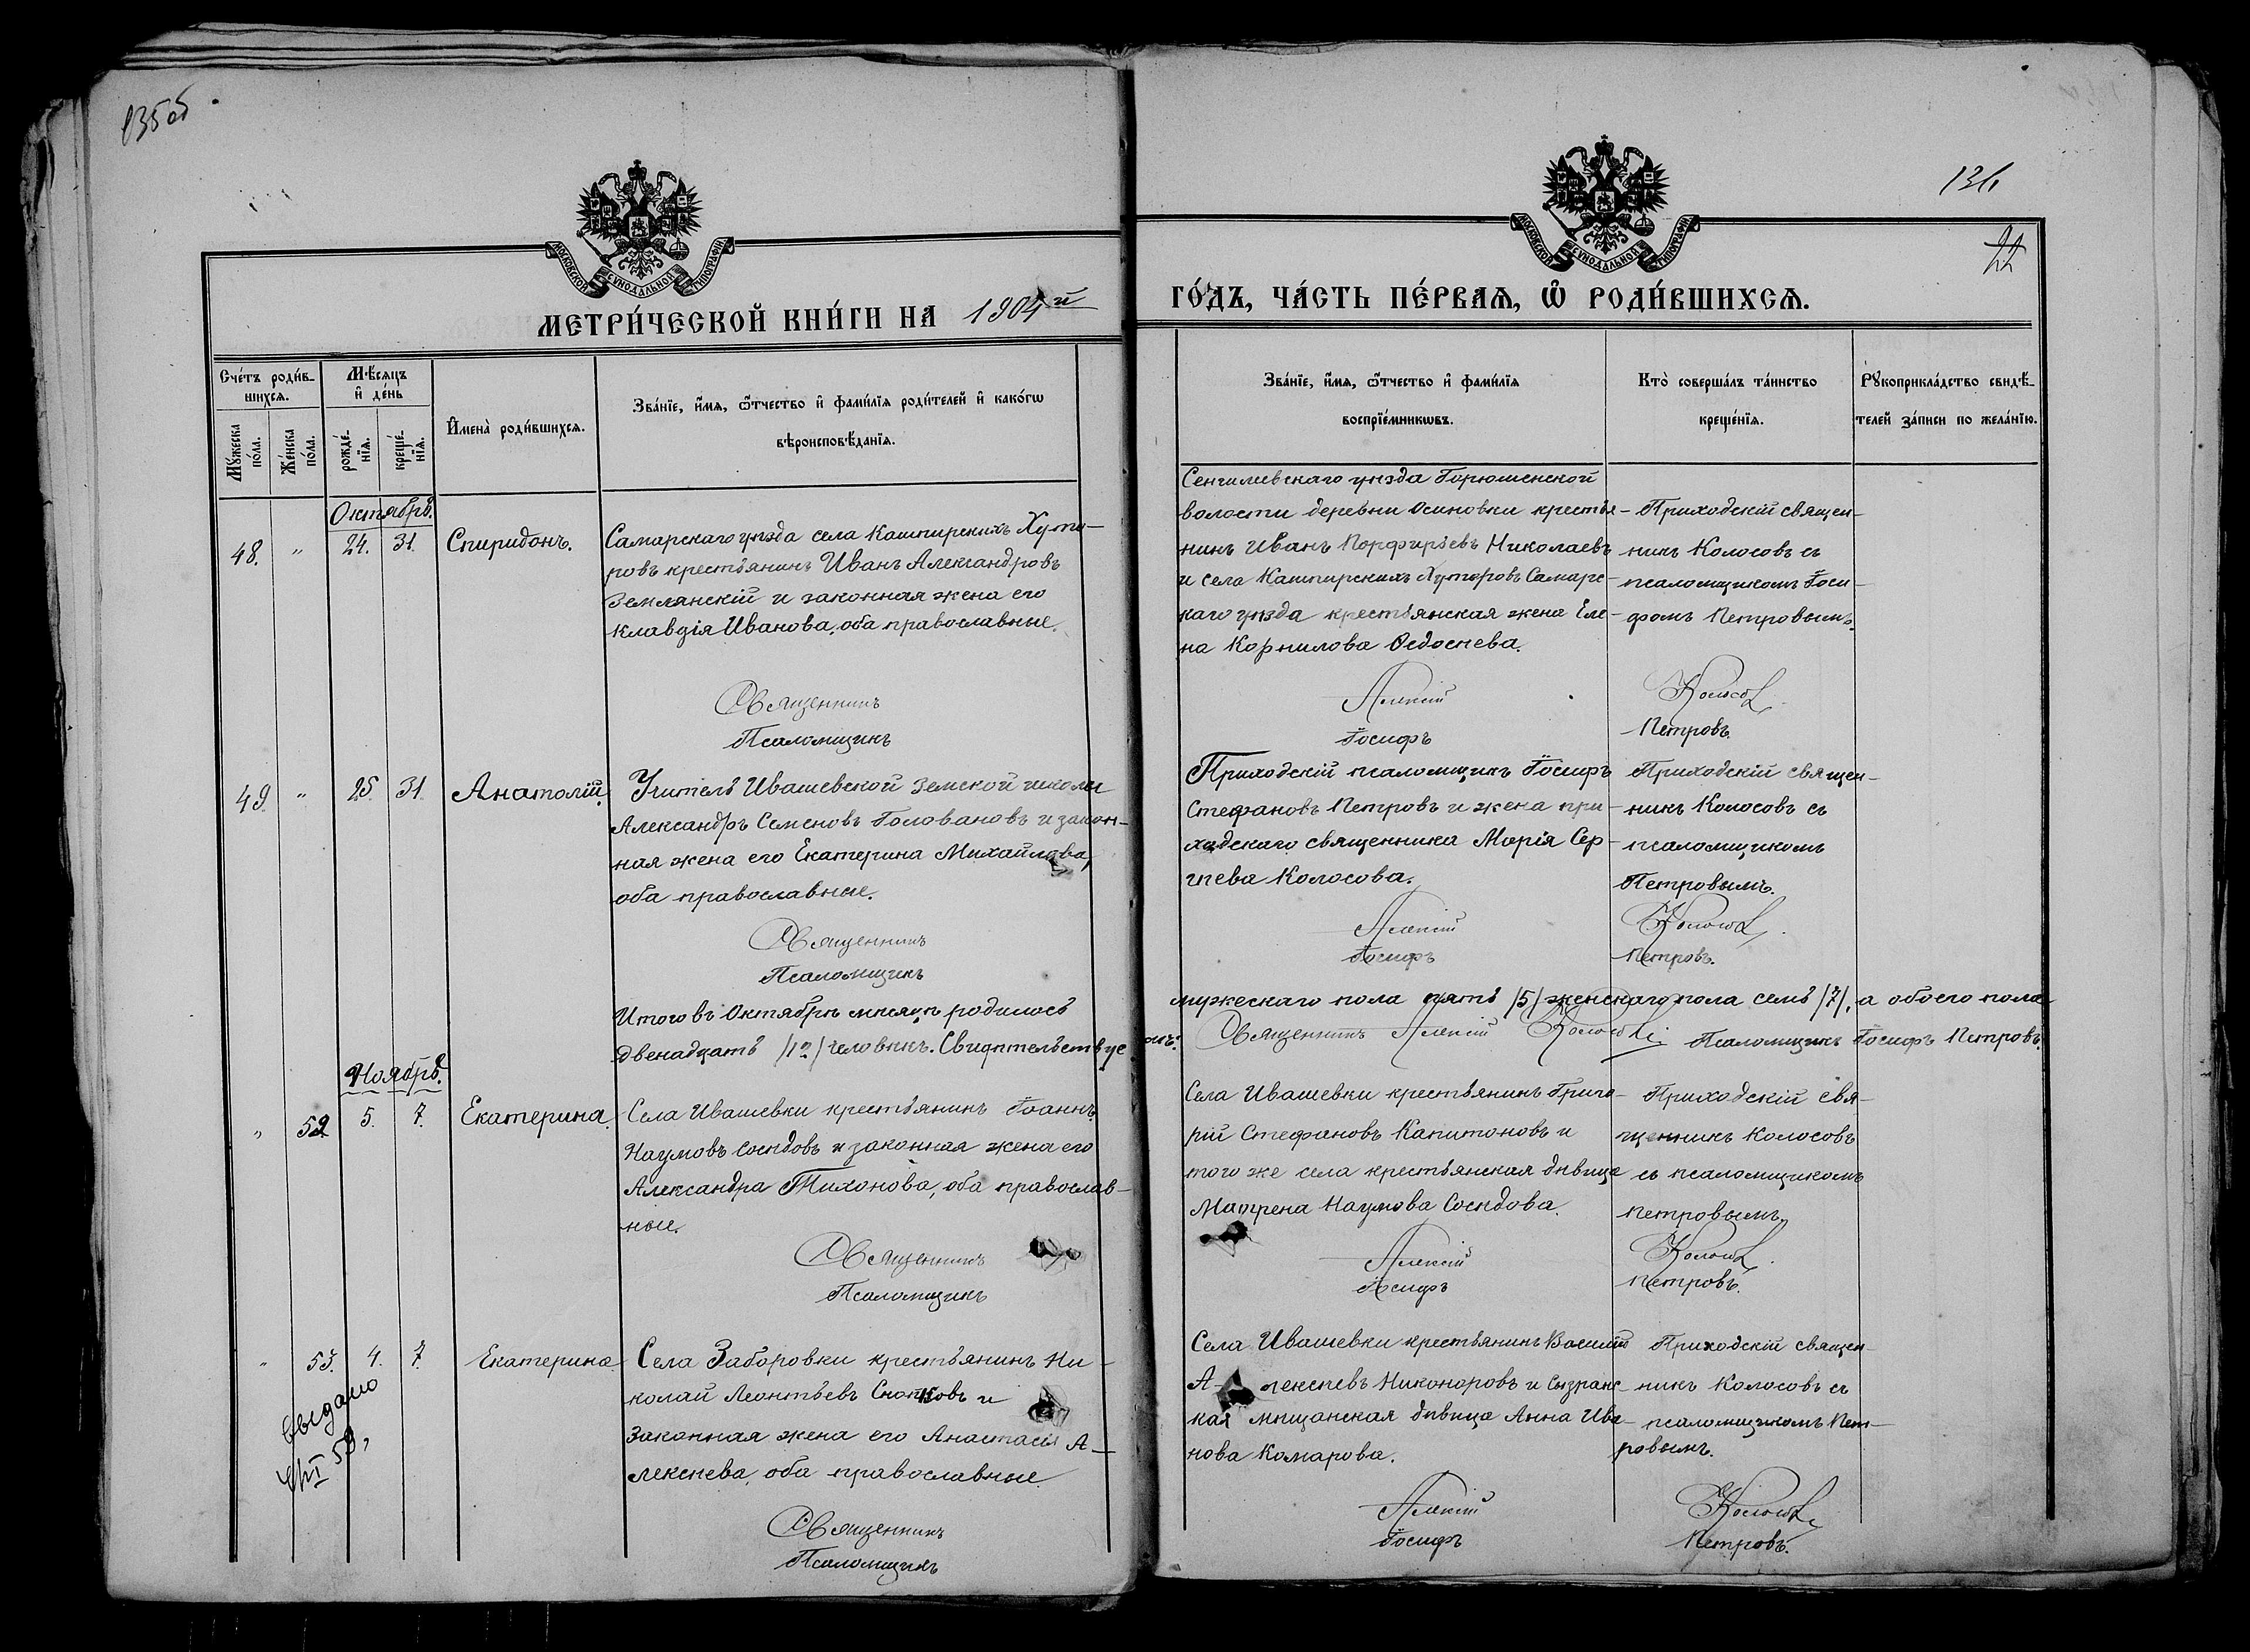 135об
136
22
МОСКОВСКОЙ СѴНОДАЛЬНОЙ ТИПОГРАФІИ
МОСКОВСКОЙ СѴНОДАЛЬНОЙ ТИПОГРАФІИ
МЕТРИ́ЧЕСКОЙ КНИ́ГИ НА 1904й
ГО́ДЪ, ЧА́СТЬ ПЕ́РВАѦ, Ѡ҃ РОДИ́ВШИХСѦ.
Сче́тъ роди́в-
шихсѧ.
Мꙋ́жеска по́ла.
Же́нска по́ла.
Мѣ́сѧцъ
и҆ де́нь
рожде́-
нїѧ.
креще́-
нїѧ.
И҆мена̀ роди́вшихсѧ.
Зва́нїе, и҆́мѧ, ѻ҆́тчество и҆ фами́лїѧ роди́телей и҆ како́гѡ
вѣроисповѣ́данїѧ.
Зва́нїе, и҆́мѧ, ѻ҆́тчество и҆ фами́лїѧ
воспрїе́мникѡвъ.
Кто̀ соверша́лъ та́инство
креще́нїѧ.
Рꙋкоприкла́дство свидѣ́-
телей за́писи по жела́нїю.
Октябрь.
48.
"
24.
31.
Спиридонъ.
Самарскаго уѣзда села Кашпирскихъ Хуто-
ровъ крестьянинъ Иванъ Александровъ
Землянскій и законная жена его
Клавдія Иванова, оба православные.
Священникъ
Псаломщикъ
Сенгилеевскаго уѣзда Горюшенской
волости деревни Осиновки крестья-
нинъ Иванъ Порфирьевъ Николаевъ
и села Кашпирскихъ Хуторовъ Самарс-
каго уѣзда крестьянская жена Еле-
на Корнилова Ѳедосѣева.
Алексій
Іосифъ
Приходскій священ-
никъ Колосовъ съ
псаломщикомъ Іоси-
фомъ Петровымъ.
Колосов
Петровъ.
49.
"
25.
31.
Анатолій.
Учитель Ивашевской земской школы
Александръ Семеновъ Головановъ и закон-
ная жена его Екатерина Михайлова,
оба православные.
Священникъ
Псаломщикъ
Приходскій псаломщикъ Іосифъ
Стефановъ Петровъ и жена при-
ходскаго священника Марія Сер-
гѣева Колосова.
Алексій
Іосифъ
Приходскій священ-
никъ Колосовъ съ
псаломщикомъ
Петровымъ.
Колосов
Петровъ.
Итого въ Октябрѣ мѣсяцѣ родилось
мужескаго пола пять /5/ женскаго пола семь /7/, а обоего пола
двенадцать /12/ человѣкъ. Свидѣтельствуе
мъ: Священникъ Алексій Колосов. Псаломщикъ Іосифъ Петровъ.
Ноябрь.
"
52
5.
7.
Екатерина.
Села Ивашевки крестьянинъ Іоаннъ
Наумовъ Сосѣдовъ и законная жена его
Александра Тихонова, оба православ-
ные.
Священникъ
Псаломщикъ
Села Ивашевки крестьянинъ Григо-
рій Стефановъ Капитоновъ и
того же села крестьянская дѣвица
Матрена Наумова Сосѣдова.
Алексій
Іосифъ
Приходскій свя-
щенникъ Колосовъ
съ псаломщикомъ
Петровымъ.
Колосов
Петровъ.
"
53.
4.
7.
Екатерина
Села Заборовки крестьянинъ Ни-
колай Леонтьевъ Снопковъ и
законная жена его Анастасія А-
лексѣева, оба православные.
Священникъ
Псаломщикъ
Села Ивашевки крестьянинъ Василій
А-лексѣевъ Никоноровъ и Сызранс-
кая мѣщанская дѣвица Анна Ива-
нова Комарова.
Алексій
Іосифъ
Приходскій священ-
никъ Колосовъ съ
псаломщикомъ Пет-
ровымъ.
Колосов
Петровъ.
Выдано